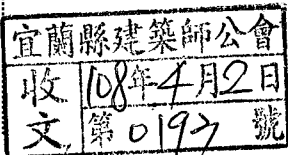 宜蘭縣建築師公會
收文
108年4月2日
第0197號